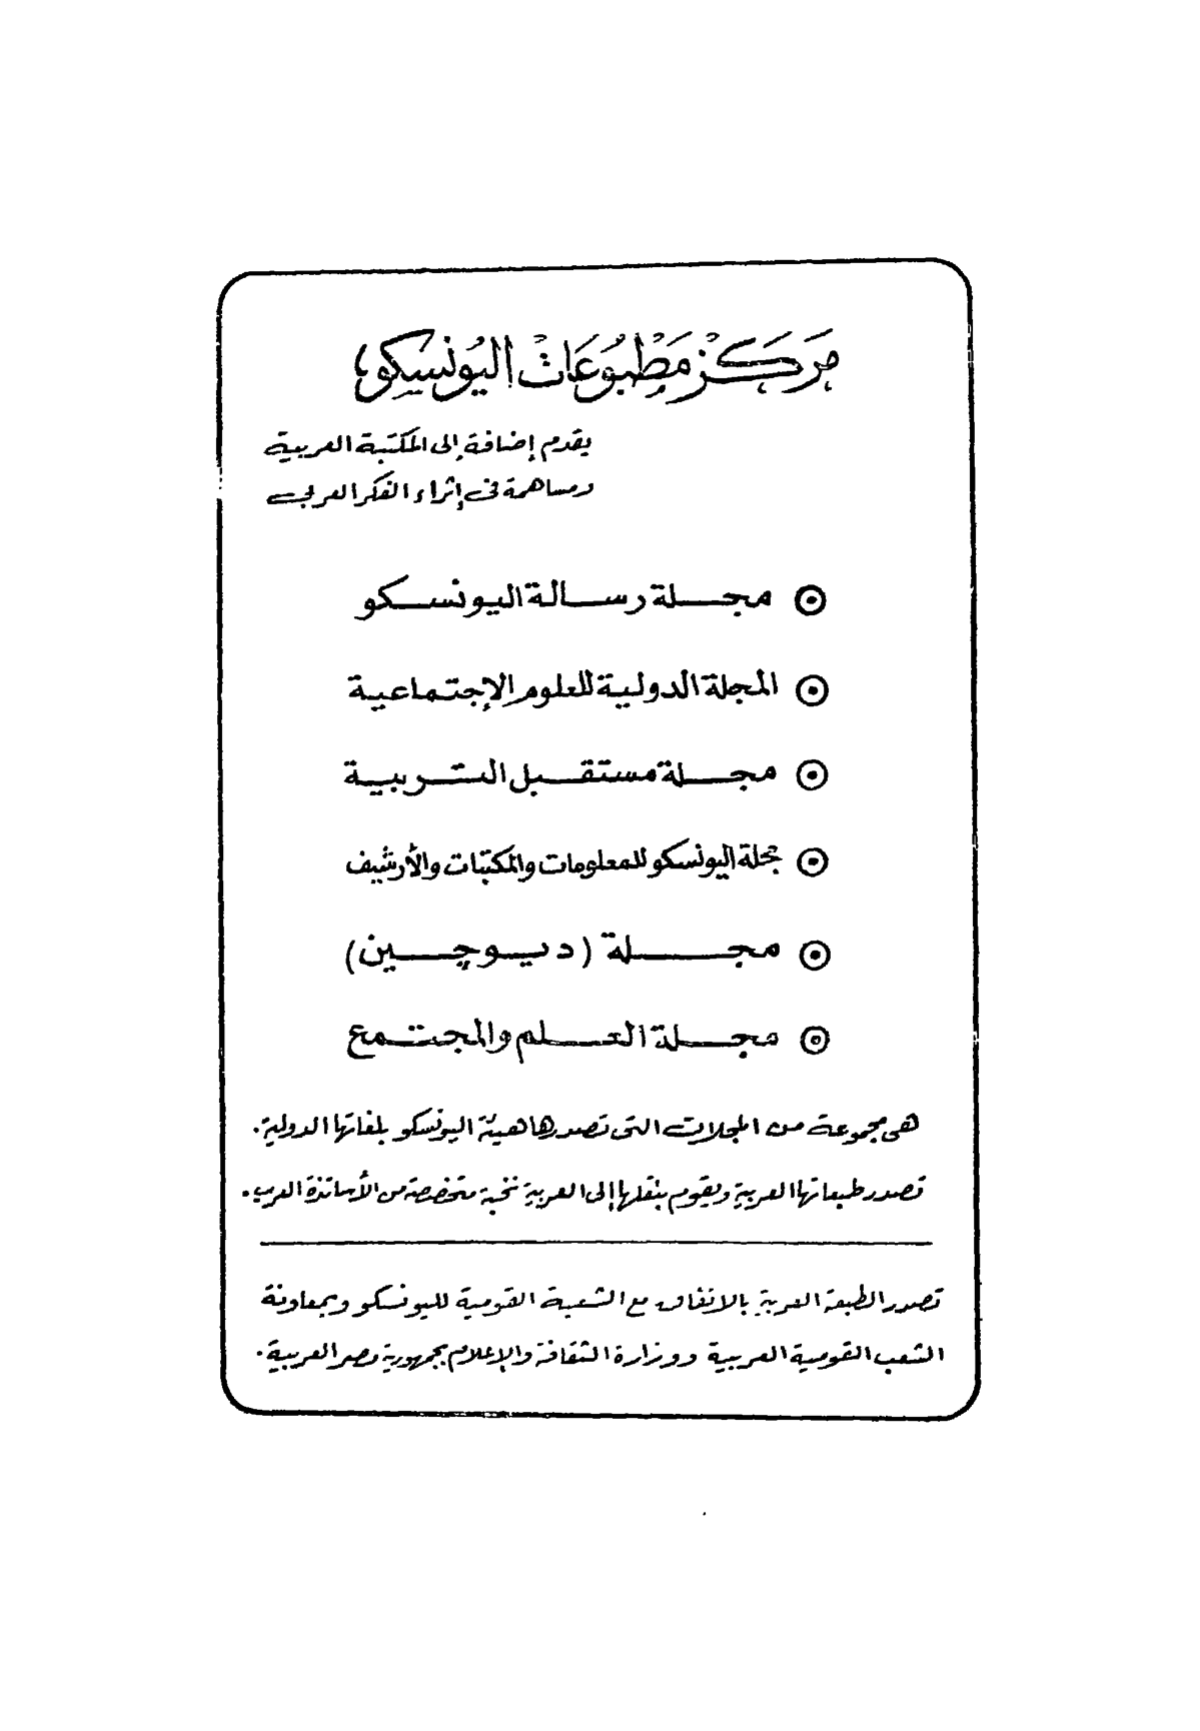 مَركَز مَطبُوعَات اليُونسكو
يقدم إضافة إلى المكتبة العربية
ومساهمة فى إثراء الفكر العربى
مجلة رسالة اليونسكو
المجلة الدولية للعلوم الإجتماعية
مجلة مستقبل التربية
مجلة اليونسكو للمعلومات والمكتبات والأرشيف
مجلة (ديوچين)
مجلة العلم والمجتمع
هى مجموعة من المجلات التى تصدرها هيئة اليونسكو بلغاتها الدولية.
تصدر طبعاتها العربية ويقوم بنقلها إلى العربية نخبة متخصصة من الأساتذة العرب.
تصدر الطبعة العربية بالاتفاق مع الشعبة القومية لليونسكو وبمعاونة
الشعب القومية العربية ووزارة الثقافة والإعلام بجمهورية مصر العربية.